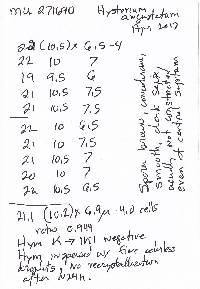 MU 271690 Hysterium
angustatum
Apr 2017
22 (10,5) x 6,5 - 4
22 10 7
19 9,5 6
21 10,5 7,5
21 10,5 7,5
22 10 6,5
21 10 7,5
21 10,5 7
20 10 7
22 10,5 6,5
21,1 (10,2) x 6,9µ - 4,0 cells
ratio 0.944
Hym K → IKI negative
Hym imposed w/ fine colorless
droplets, no recrystallization
after 24h.
Spores brown,
smooth, dark septa,
usually not constricted
even at central septum